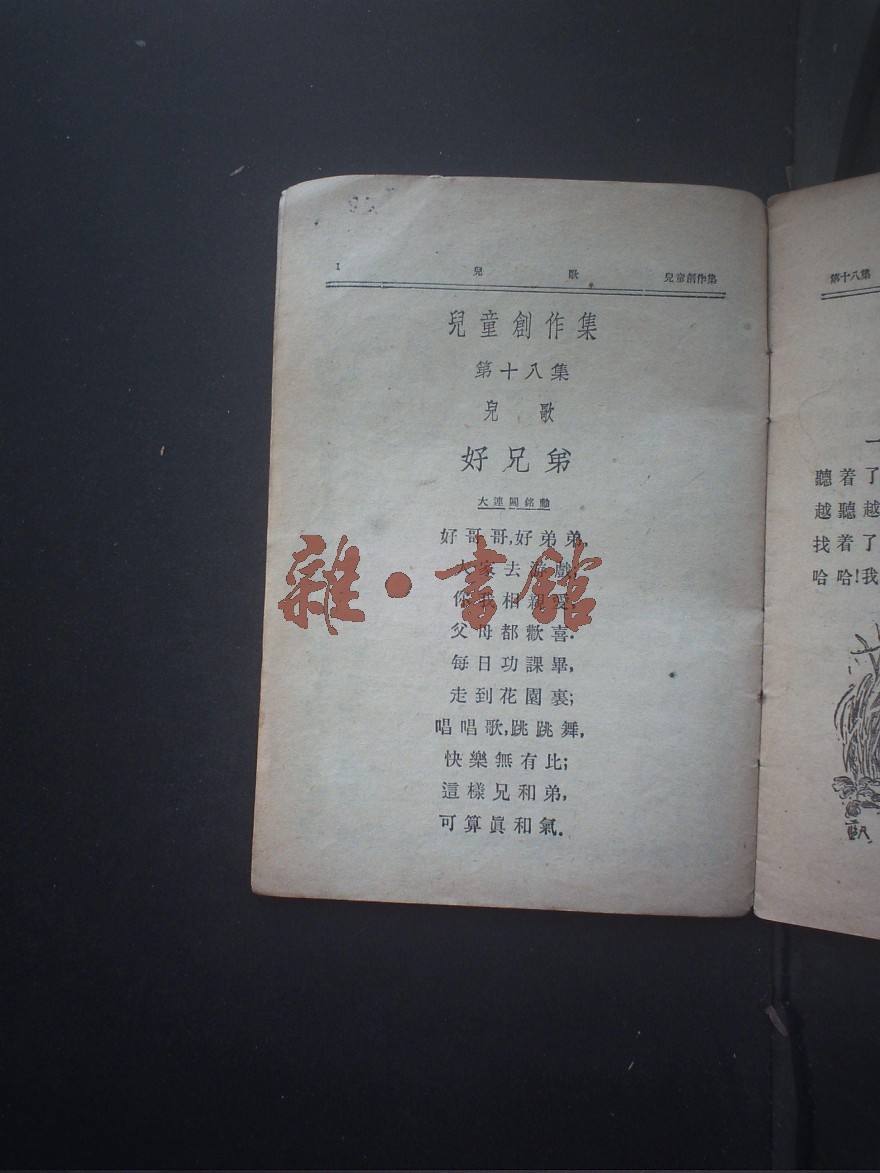 1 兒歌 兒童創作集
兒童創作集
第十八集
兒歌
好兄弟
大連 閻銘勳
好哥哥,好弟弟,
大家去游戲;
你我相親愛,
父母都歡喜.
每日功課畢,
走到花園裏;
唱唱歌,跳跳舞,
快樂無有比;
這樣兄和弟,
可算眞和氣.
雜·書館
第十八集
一
聽着了
越聽越
找着了
哈哈!我